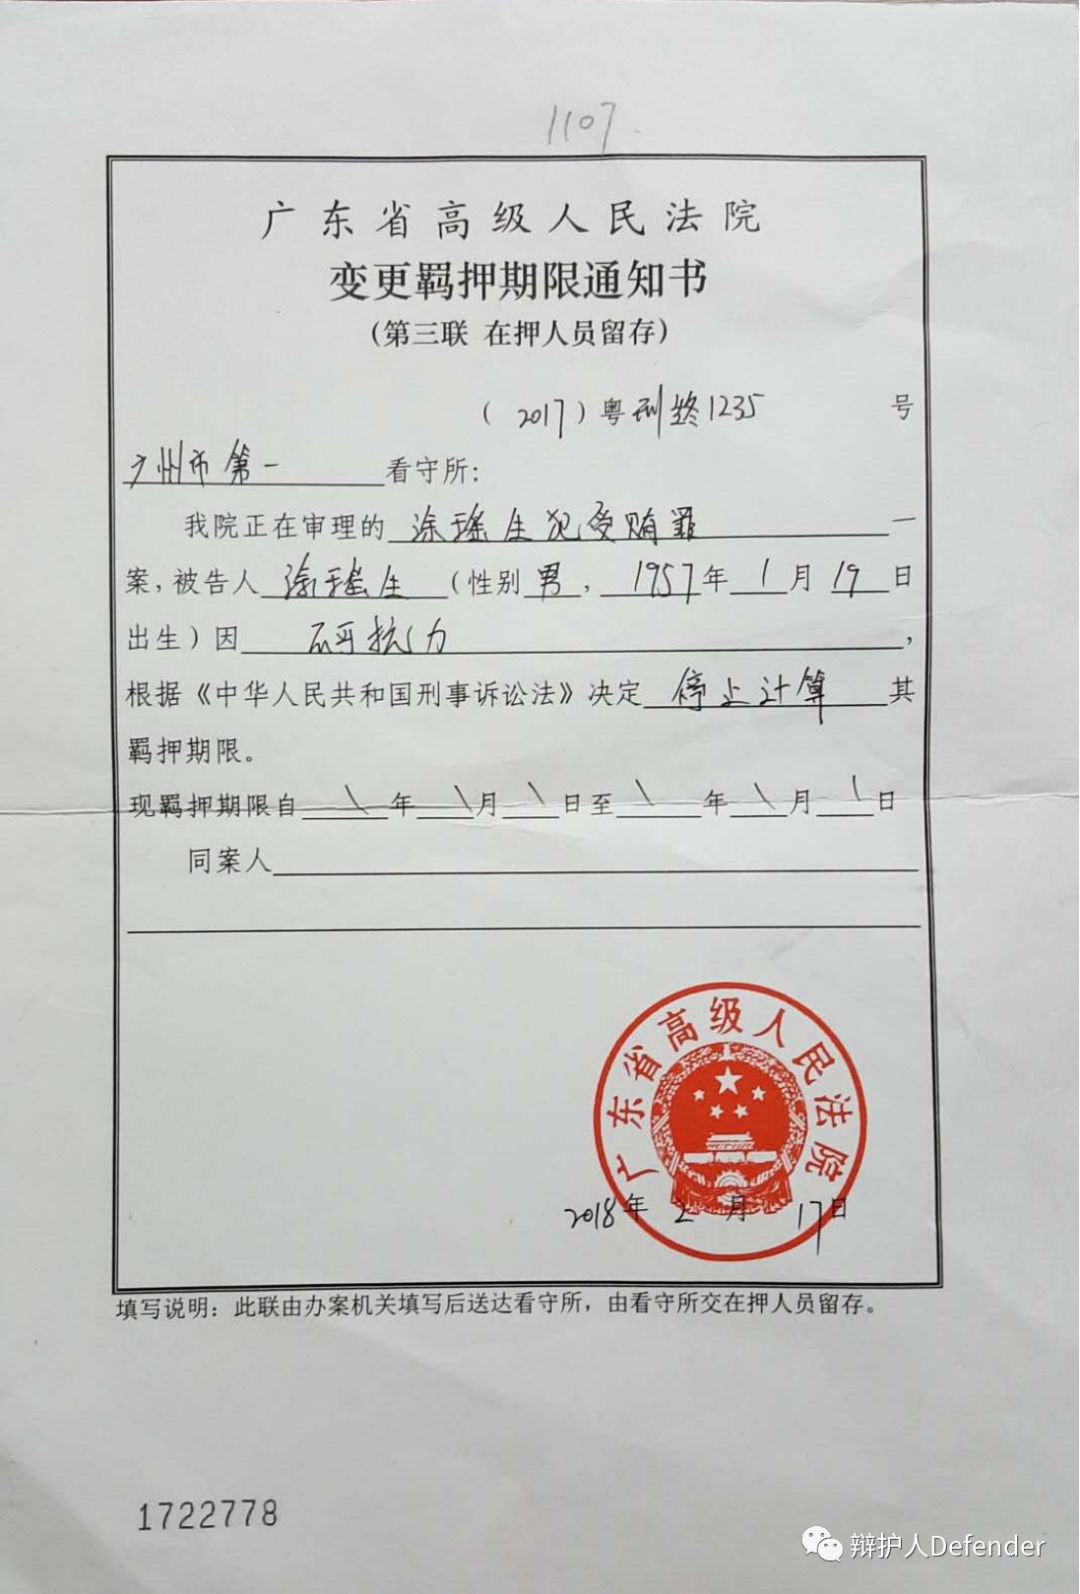 1107
广东省高级人民法院
变更羁押期限通知书
（第三联 在押人员留存）
（2017）粤刑终1235号
广州市第一看守所：
我院正在审理的涂瑶生犯受贿罪一
案，被告人涂瑶生（性别男，1957年1月19日
出生）因不可抗力，
根据《中华人民共和国刑事诉讼法》决定停止计算其
羁押期限。
现羁押期限自\年\月\日至\年\月\日
同案人
广东省高级人民法院
2018年2月17日
填写说明：此联由办案机关填写后送达看守所，由看守所交在押人员留存。
1722778
辩护人Defender